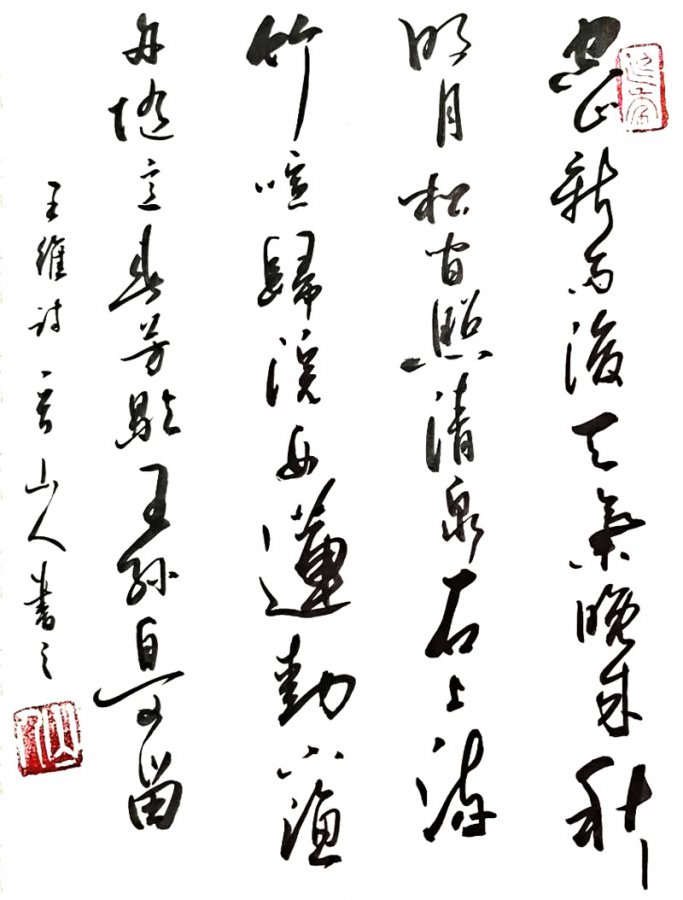 空山新雨後天氣晚來秋
明月松間照清泉石上流
竹喧歸浣女蓮動下漁
舟隨意春芳歇王孫自可留
王維詩 山人書之